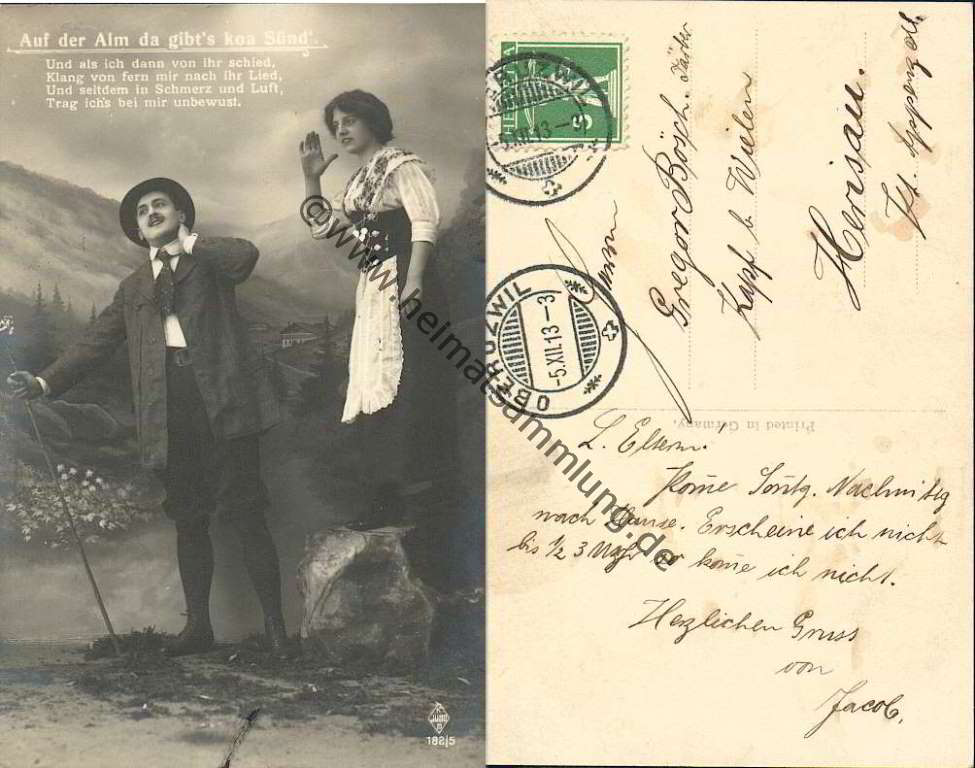 Auf der Alm da gibt's koa Sünd'.
Und als ich dann von ihr schied,
Klang von fern mir nach ihr Lied,
Und seitdem in Schmerz und Luft,
Trag ich's bei mir unbewust.
182/5
HELVETIA
5
OBERUZWIL
-5.XII.13-3
OBERUZWIL
-5.XII.13-3
Gregor Bösch.
Kapf b. Wielen
Herisau.
Kt. Appenzell
Printed in Germany.
L. Eltern!
Kome Sontg. Nachmittg
nach Hause. Erscheine ich nicht
bis ½ 3 Uhr so kome ich nicht.
Herzlichen Gruss
von
Jacob.
©www.heimatsammlung.de